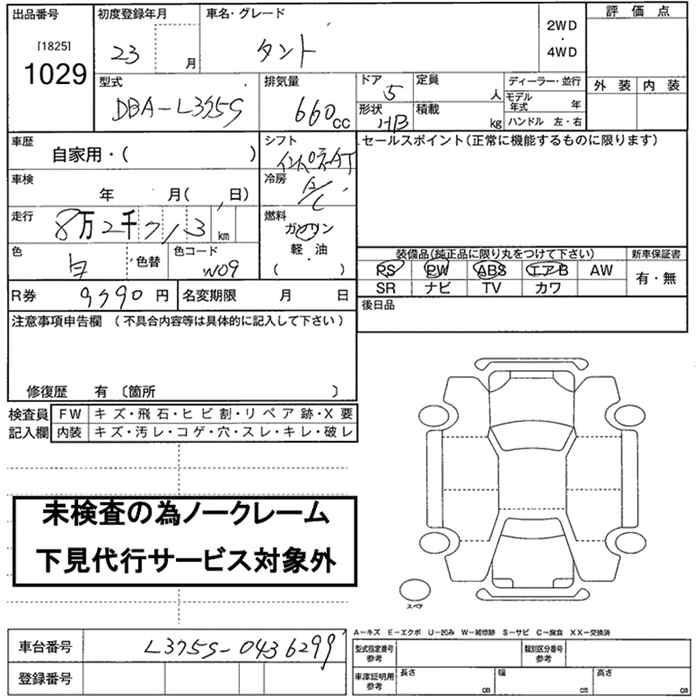 出品番号 初度登録年月 車名・グレード 評価点
[1825] 2WD
1029 23 月 タント ・
4WD
外装 内装
型式 排気量 ドア 5 定員 人 ディーラー・並行
DBA-L375S 660cc 形状 HB 積載 kg モデル年式 年
ハンドル 左・右
車歴 シフト セールスポイント(正常に機能するものに限ります)
自家用・( ) インパネAT
車検 冷房
年 月( 日) A/C
走行 8万2千713km 燃料
ガソリン
色 白 ・色替 色コード W09 軽・油
・
( )
装備品(純正品に限り丸をつけて下さい) 新車保証書
PS PW ABS エアB AW 有・無
SR ナビ TV カワ
R券 9990円 名変期限 月 日 後日品
注意事項申告欄 (不具合内容等は具体的に記入して下さい)
修復歴 有 〔箇所 〕
検査員 FW キズ・飛石・ヒビ割・リペア跡・X要
記入欄 内装 キズ・汚レ・コゲ・穴・スレ・キレ・破レ
未検査の為ノークレーム
下見代行サービス対象外
スペア
A-キズ E-エクボ U-凹み W-補修跡 S-サビ C-腐食 XX-交換済
車台番号 L375S-0436299 型式指定番号 参考 類別区分番号 参考
登録番号 車庫証明用 参考 長さ cm 幅 cm 高さ cm